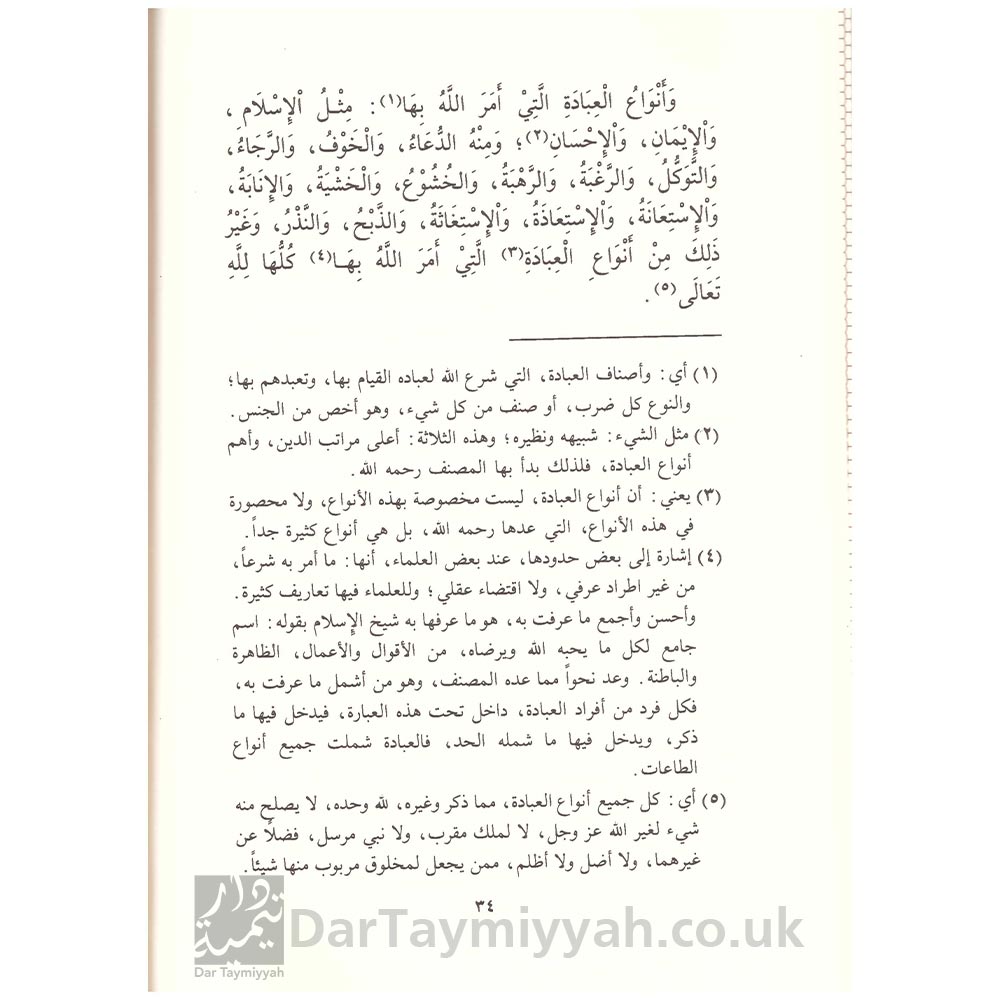 وَأَنْوَاعُ الْعِبَادَةِ الَّتِيْ أَمَرَ اللَّهُ بِهَا(١): مِثْلُ الْإِسْلَامِ،
وَالْإِيْمَانِ، وَالْإِحْسَانِ(٢)؛ وَمِنْهُ الدُّعَاءُ، وَالْخَوْفُ، وَالرَّجَاءُ،
وَالتَّوَكُّلُ، وَالرَّغْبَةُ، وَالرَّهْبَةُ، وَالخُشُوْعُ، وَالْخَشْيَةُ، وَالإِنَابَةُ،
وَالْإِسْتِعَانَةُ، وَالْإِسْتِعَاذَةُ، وَالْإِسْتِغَاثَةُ، وَالذَّبْحُ، وَالنَّذْرُ، وَغَيْرُ
ذَلِكَ مِنْ أَنْوَاعِ الْعِبَادَةِ(٣) الَّتِيْ أَمَرَ اللَّهُ بِهَا(٤) كُلُّهَا لِلَّهِ
تَعَالَى(٥).
(١) أي: وأصناف العبادة، التي شرع الله لعباده القيام بها، وتعبدهم بها؛
والنوع كل ضرب، أو صنف من كل شيء، وهو أخص من الجنس.
(٢) مثل الشيء: شبيهه ونظيره؛ وهذه الثلاثة: أعلى مراتب الدين، وأهم
أنواع العبادة، فلذلك بدأ بها المصنف رحمه الله.
(٣) يعني: أن أنواع العبادة، ليست مخصوصة بهذه الأنواع، ولا محصورة
في هذه الأنواع، التي عدها رحمه الله، بل هي أنواع كثيرة جداً.
(٤) إشارة إلى بعض حدودها، عند بعض العلماء، أنها: ما أمر به شرعاً،
من غير اطراد عرفي، ولا اقتضاء عقلي؛ وللعلماء فيها تعاريف كثيرة.
وأحسن وأجمع ما عرفت به، هو ما عرفها به شيخ الإسلام بقوله: اسم
جامع لكل ما يحبه الله ويرضاه، من الأقوال والأعمال، الظاهرة
والباطنة. وعد نحواً مما عده المصنف، وهو من أشمل ما عرفت به،
فكل فرد من أفراد العبادة، داخل تحت هذه العبارة، فيدخل فيها ما
ذكر، ويدخل فيها ما شمله الحد، فالعبادة شملت جميع أنواع
الطاعات.
(٥) أي: كل جميع أنواع العبادة، مما ذكر وغيره، لله وحده، لا يصلح منه
شيء لغير الله عز وجل، لا لملك مقرب، ولا نبي مرسل، فضلًا عن
غيرهما، ولا أضل ولا أظلم، ممن يجعل لمخلوق مربوب منها شيئاً.
٣٤
دار تيمية
Dar Taymiyyah
DarTaymiyyah.co.uk